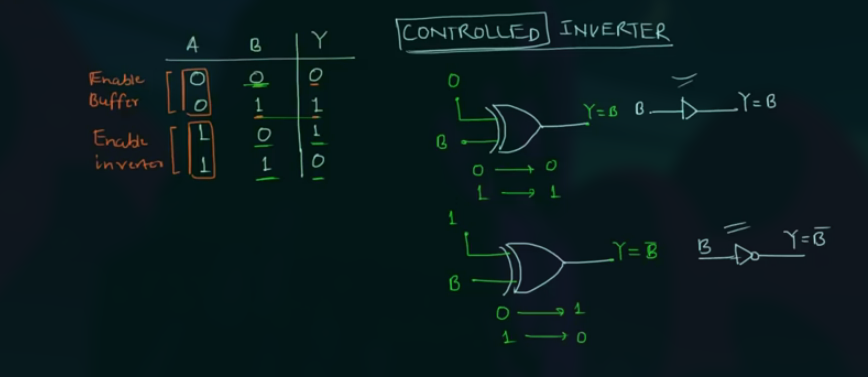 CONTROLLED INVERTER
A B Y
Enable 0 0 0
Buffer 0 1 1
Enable 1 0 1
inverter 1 1 0
0
B
Y=B
B Y=B
0 → 0
1 → 1
1
B
Y=B̅
B Y=B̅
0 → 1
1 → 0